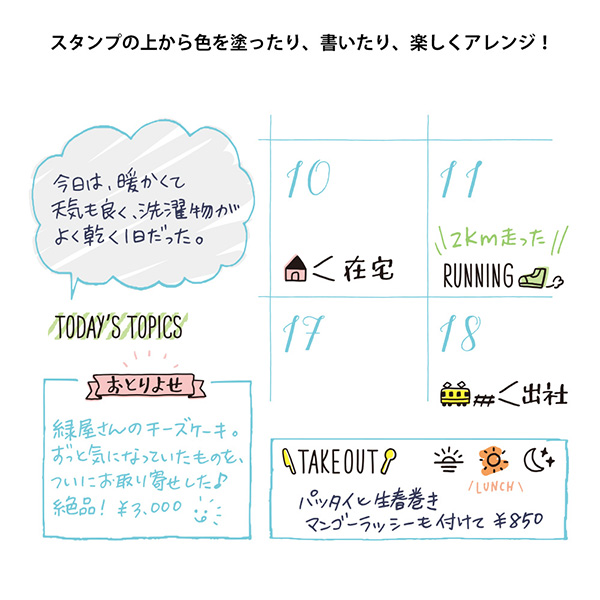 スタンプの上から色を塗ったり、書いたり、楽しくアレンジ！
今日は、暖かくて
天気も良く、洗濯物が
よく乾く1日だった。
TODAY'S TOPICS
10
11
在宅
12km走った
RUNNING
17
18
出社
おとりよせ
緑屋さんのチーズケーキ。
ずっと気になっていたものを、
ついにお取り寄せした♪
絶品！ ¥3,000
TAKEOUT
LUNCH
パッタイと生春巻き
マンゴーラッシーも付けて ¥850